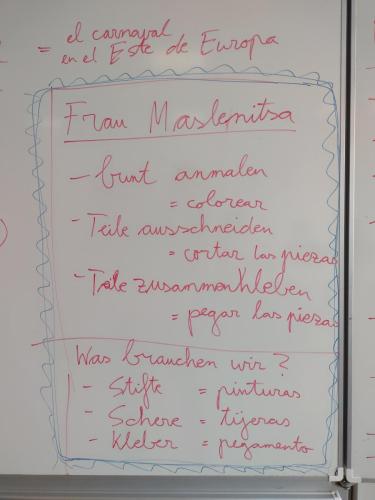 = el carnaval
en el Este de Europa
Frau Maslenitsa
- bunt anmalen
= colorear
- Teile ausschneiden
= cortar las piezas
- Teile zusammenkleben
= pegar las piezas
Was brauchen wir?
- Stifte = pinturas
- Schere = tijeras
- Kleber = pegamento